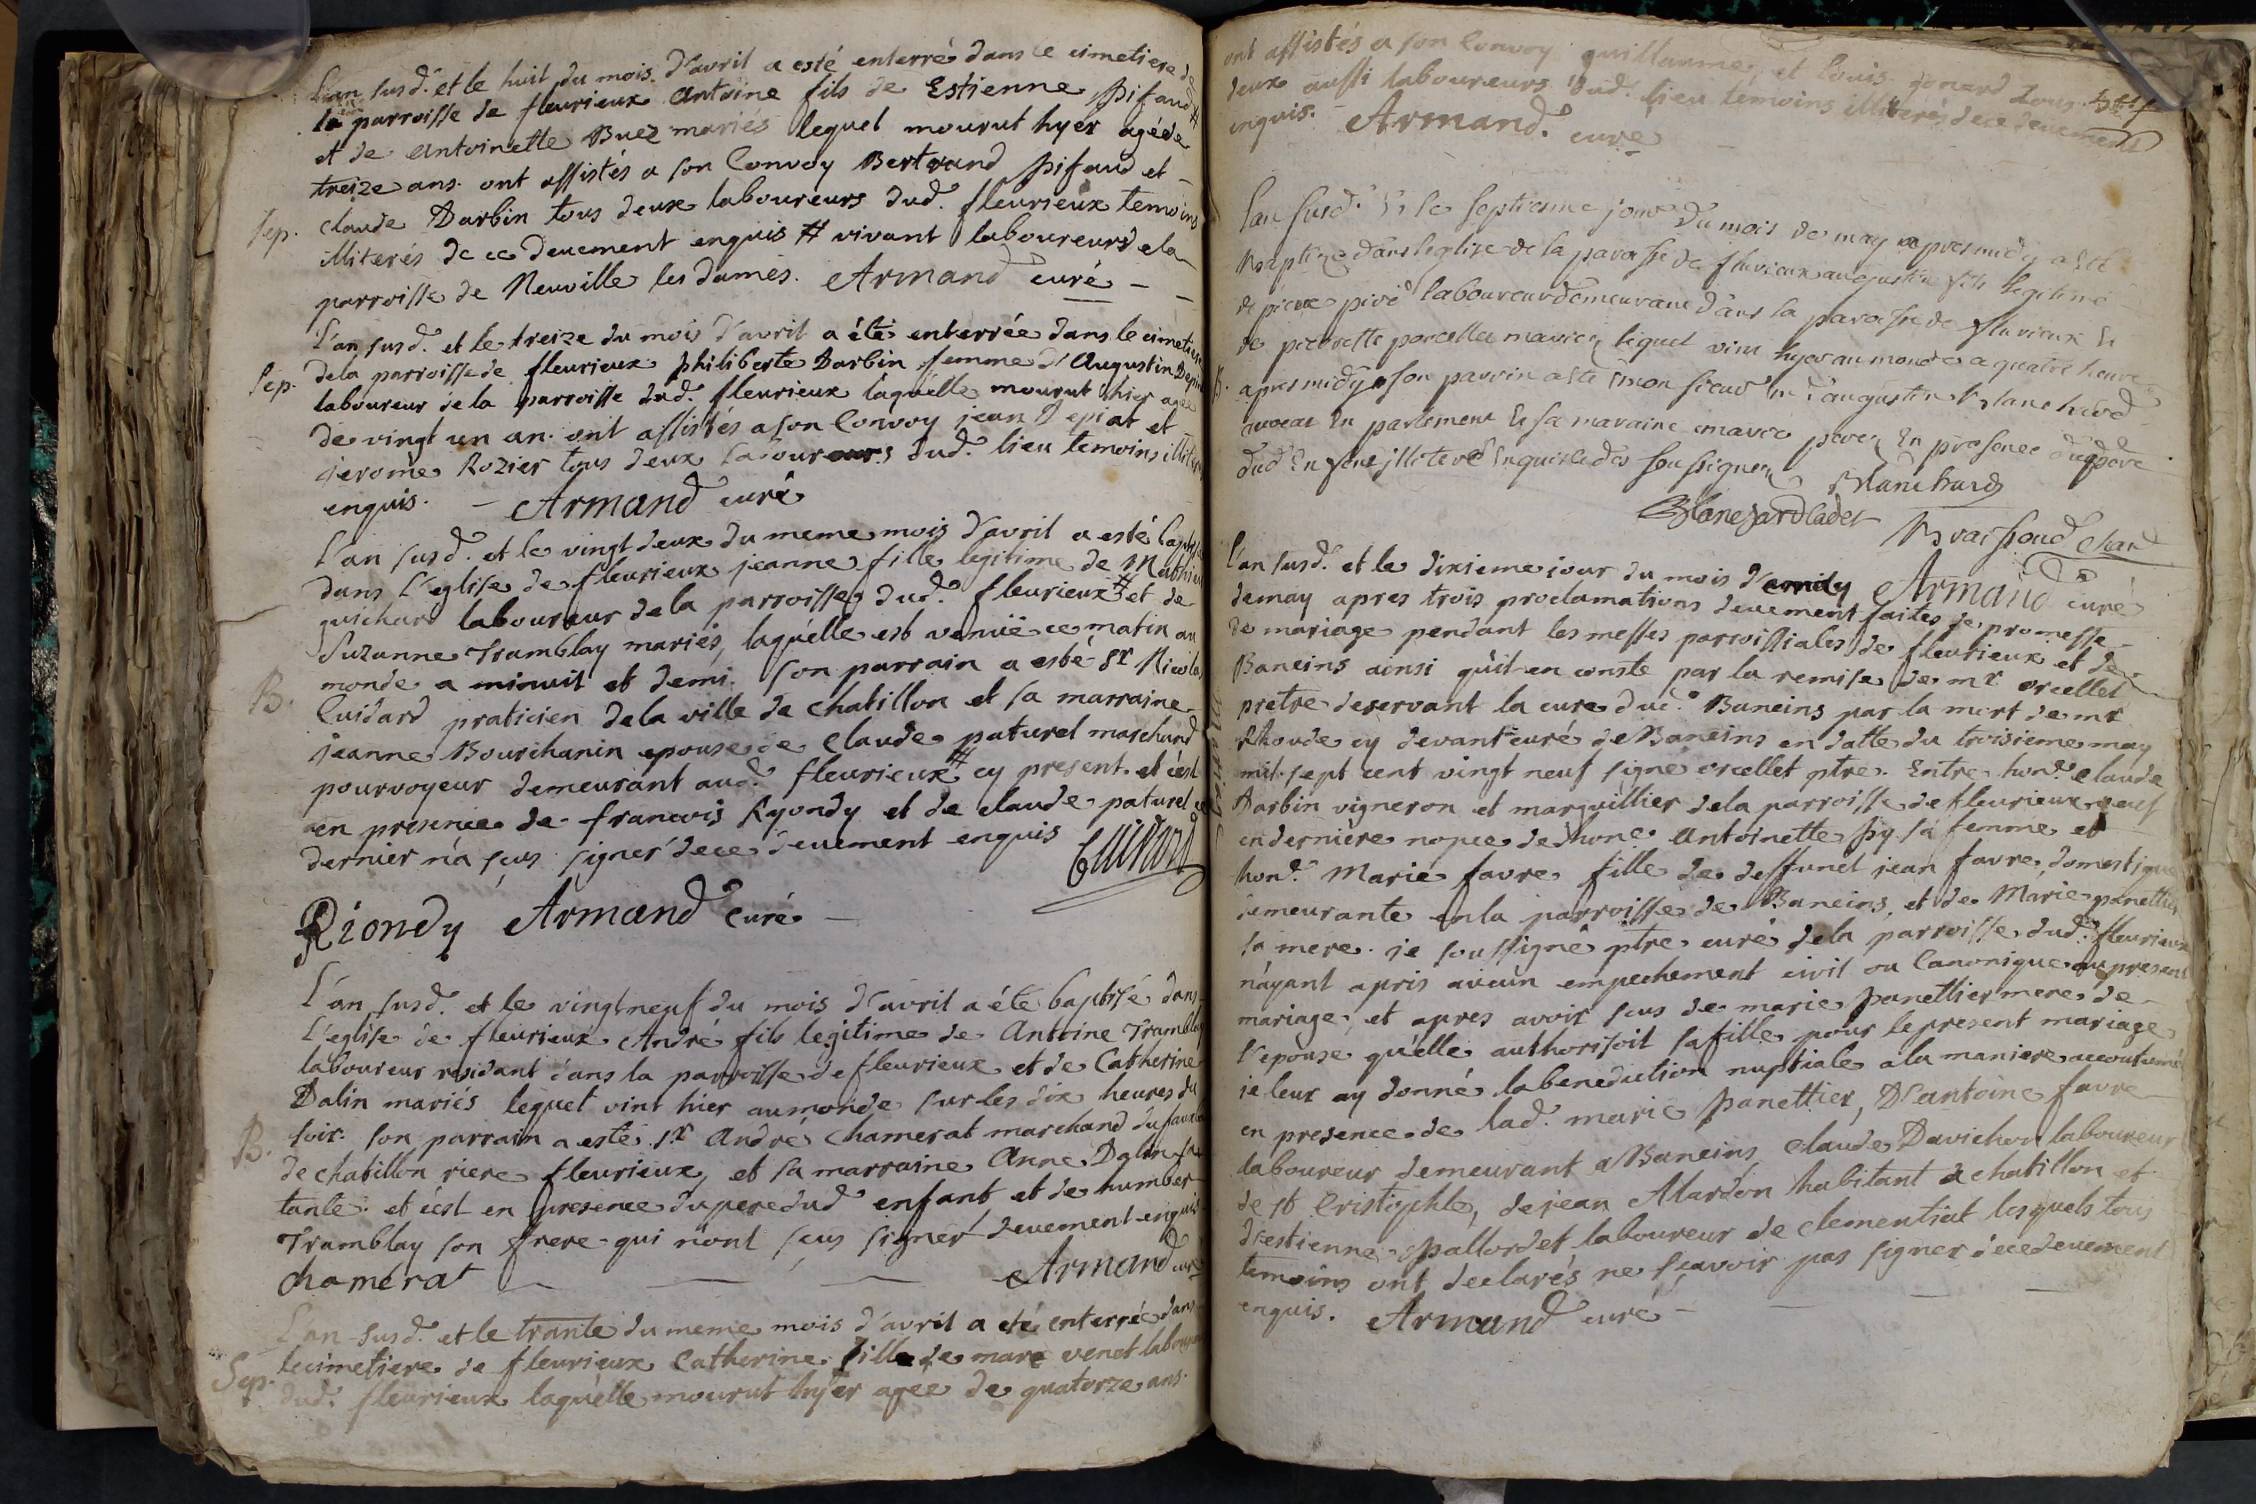 L'an susd. et le huit du mois d'avril a esté enterré dans le cimetiere de
la parroisse de fleurieux Antoine fils de Estienne Pifaud #
et de Antoinette Buez mariés lequel mourut hyer agé de
treize ans. ont assistés a son Convoy Bertrand Pifaud et
Sep. claude Darbin tous deux laboureurs dud. fleurieux temoins
illiterés de ce deuement enquis # vivant laboureurs de la
parroisse de Neuville les dames. Armand curé
L'an susd. et le treize du mois d'avril a été enterrée dans le cimetiere
Sep. de la parroisse de fleurieux philiberte Darbin femme d'Augustin
laboureur de la parroisse dud. fleurieux laquelle mourut hier agée
de vingt un an. ont assistés a son Convoy jean Depiat et
jerome Rozier tous deux laboureurs dud. lieu temoins illiterés
enquis. Armand curé
L'an susd. et le vingt deux du meme mois d'avril a esté baptisée
dans L'eglise de fleurieux jeanne fille legitime de Mathieu
guichard laboureur de la parroisse dud. fleurieux # et de
Suzanne Tramblay mariés, laquelle est venüe ce matin au
monde a minuit et demi. son parrain a esté Sr Nicolas
B. Cuidard praticien de la ville de chatillon et sa marraine
jeanne Bourchanin epouse de Claude paturel marchand
pourvoyeur demeurant aud. fleurieux # cy present. et c'est
en presence de francois Ryondy et de claude paturel ce
dernier n'a sçus signer de ce deuement enquis Cuidard
Riondy Armand Curé
L'an susd. et le vingt neuf du mois d'avril a été baptisé dans
L'eglise de fleurieux André fils legitime de Antoine Tramblay
laboureur residant dans la parroisse de fleurieux et de Catherine
Dalin mariés lequel vint hier au monde sur les dix heures du
B. soir. son parrain a esté sr André Chamerat marchand du
de chatillon riere fleurieux, et sa marraine Anne Dalin sa
tante. et c'est en presence du pere dud enfant et de humber
Tramblay son frere qui n'ont sçus signer deuement enquis
chamerat Armand curé
L'an susd. et le trante du meme mois d'avril a eté enterrée dans
le cimetiere de fleurieux Catherine fille de marc venet laboureur
Sep. dud. fleurieux laquelle mourut hyer agée de quatorze ans.
ont assistés a son Convoy guillaume, et louis gonard tous
deux aussi laboureurs dud. lieu temoins illiterés de ce deuement
enquis. Armand. curé
Lan susd. Et le septieme jour du mois de may apres midy a esté
Baptisé dans leglise de la paroisse de fleurieux augustin fils legitime
de pierre laboureur demeurant dans la paroisse de fleurieux Et
de pierrette mariez lequel vint hyer au monde a quatre heure
B. apres midy son parrin a esté mon sieur augustin Blanchard
avocat En parlement Et sa maraine En presence dud pere
dud Enfent illiteré Enquis les soussignez Blanchard
Blanchard Cadet
L'an susd. et le dixieme jour du mois Armand curé
de may apres trois proclamations deuement faites de promesse
de mariage pendant les messes parroissiales de fleurieux et de
Baneins ainsi qu'il en conste par la remise de mr orcellet
pretre deservant la cure dud. Baneins par la mort de mr
Rhoude cy devant curé de Baneins en datte du troisieme may
mil sept cent vingt neuf signé orcellet ptre. Entre hon. claude
Darbin vigneron et marguillier de la parroisse de fleurieux veuf
en derniere nopce de hone. Antoinette py sa femme et
hon. Marie favre fille de deffunct jean favre, domestique
demeurante en la parroisse de Baneins, et de Marie panettier
sa mere. je soussigné ptre curé de la parroisse dud. fleurieux
n'ayant apris aucun empechement civil ou Canonique au present
mariage, et apres avoir sçus de marie panettier mere de
L'epouse quelle authorisoit sa fille pour le present mariage
je leur ay donné la benediction nuptiale a la maniere accoutumée
en presence de lad. marie panettier, D'antoine favre
laboureur demeurant a Baneins, claude Davichon laboureur
de st Cristophle, de jean Alardon habitant a chatillon et
d'estienne pallordet laboureur de clementiat lesquels tous
temoins ont declarés ne sçavoir pas signer de ce deuement
enquis. Armand curé